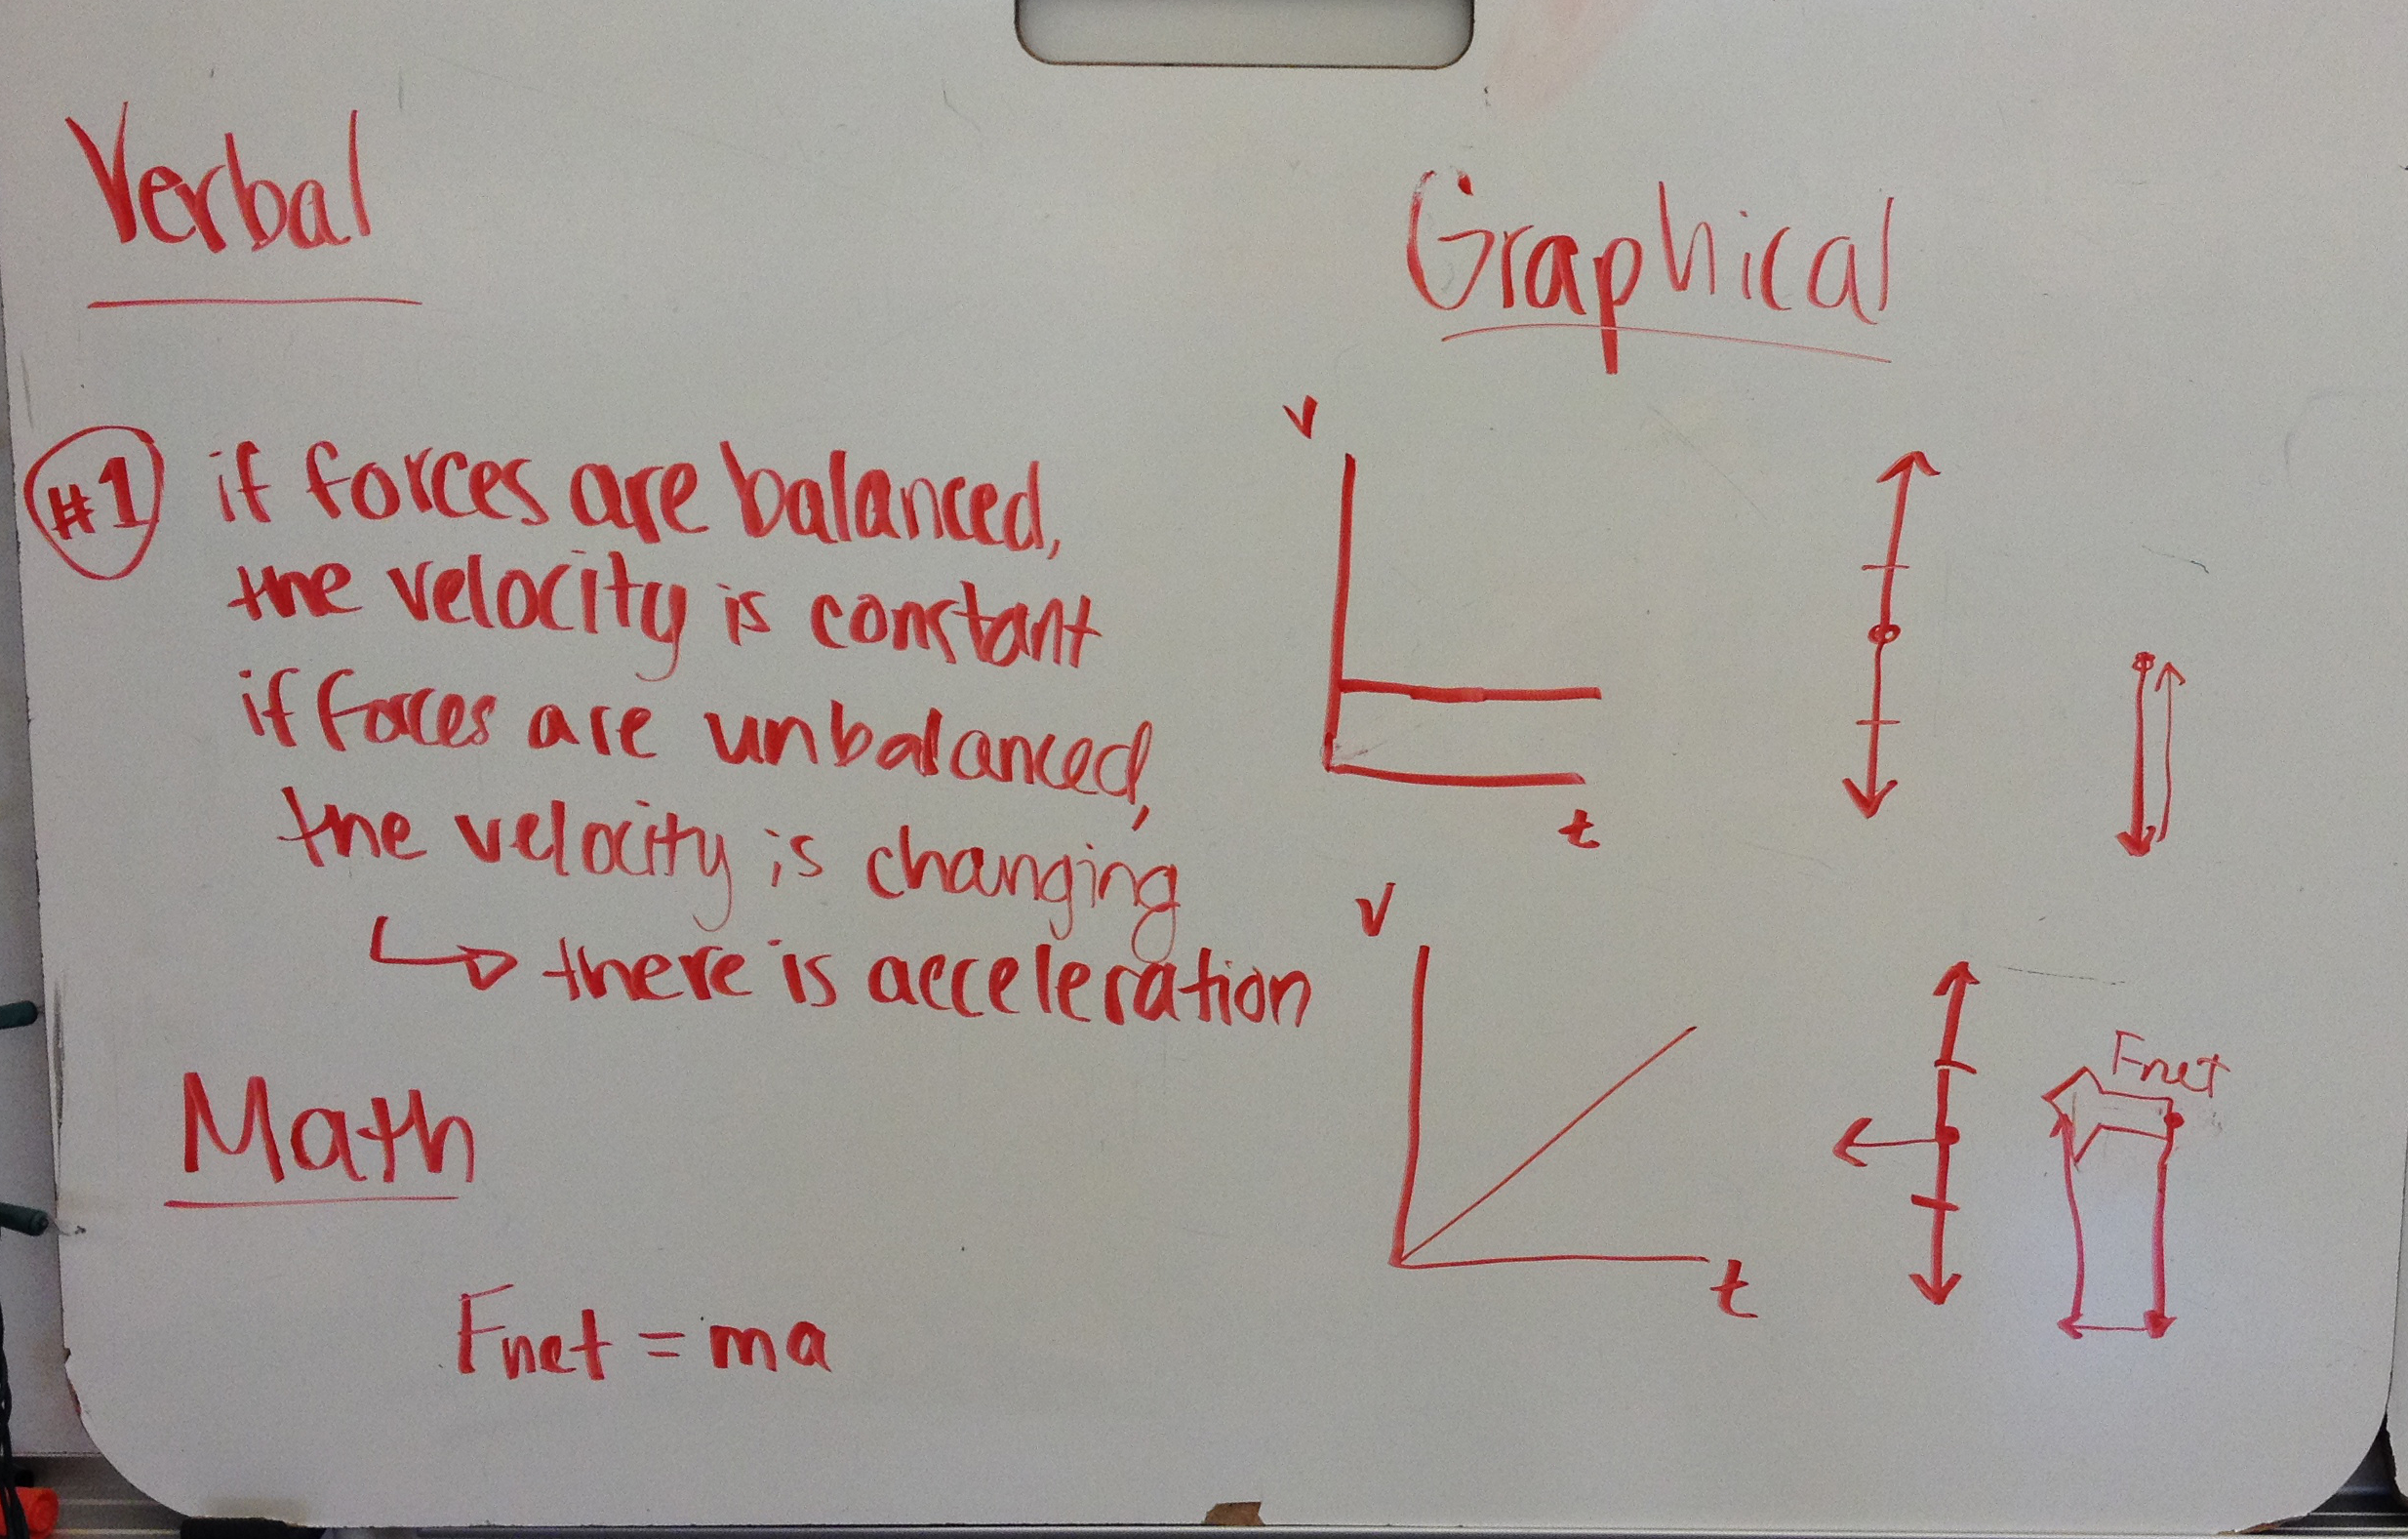 Verbal
#1 if forces are balanced,
the velocity is constant
if forces are unbalanced,
the velocity is changing
there is acceleration
Math
Fnet = ma
Graphical
v
t
v
t
Fnet